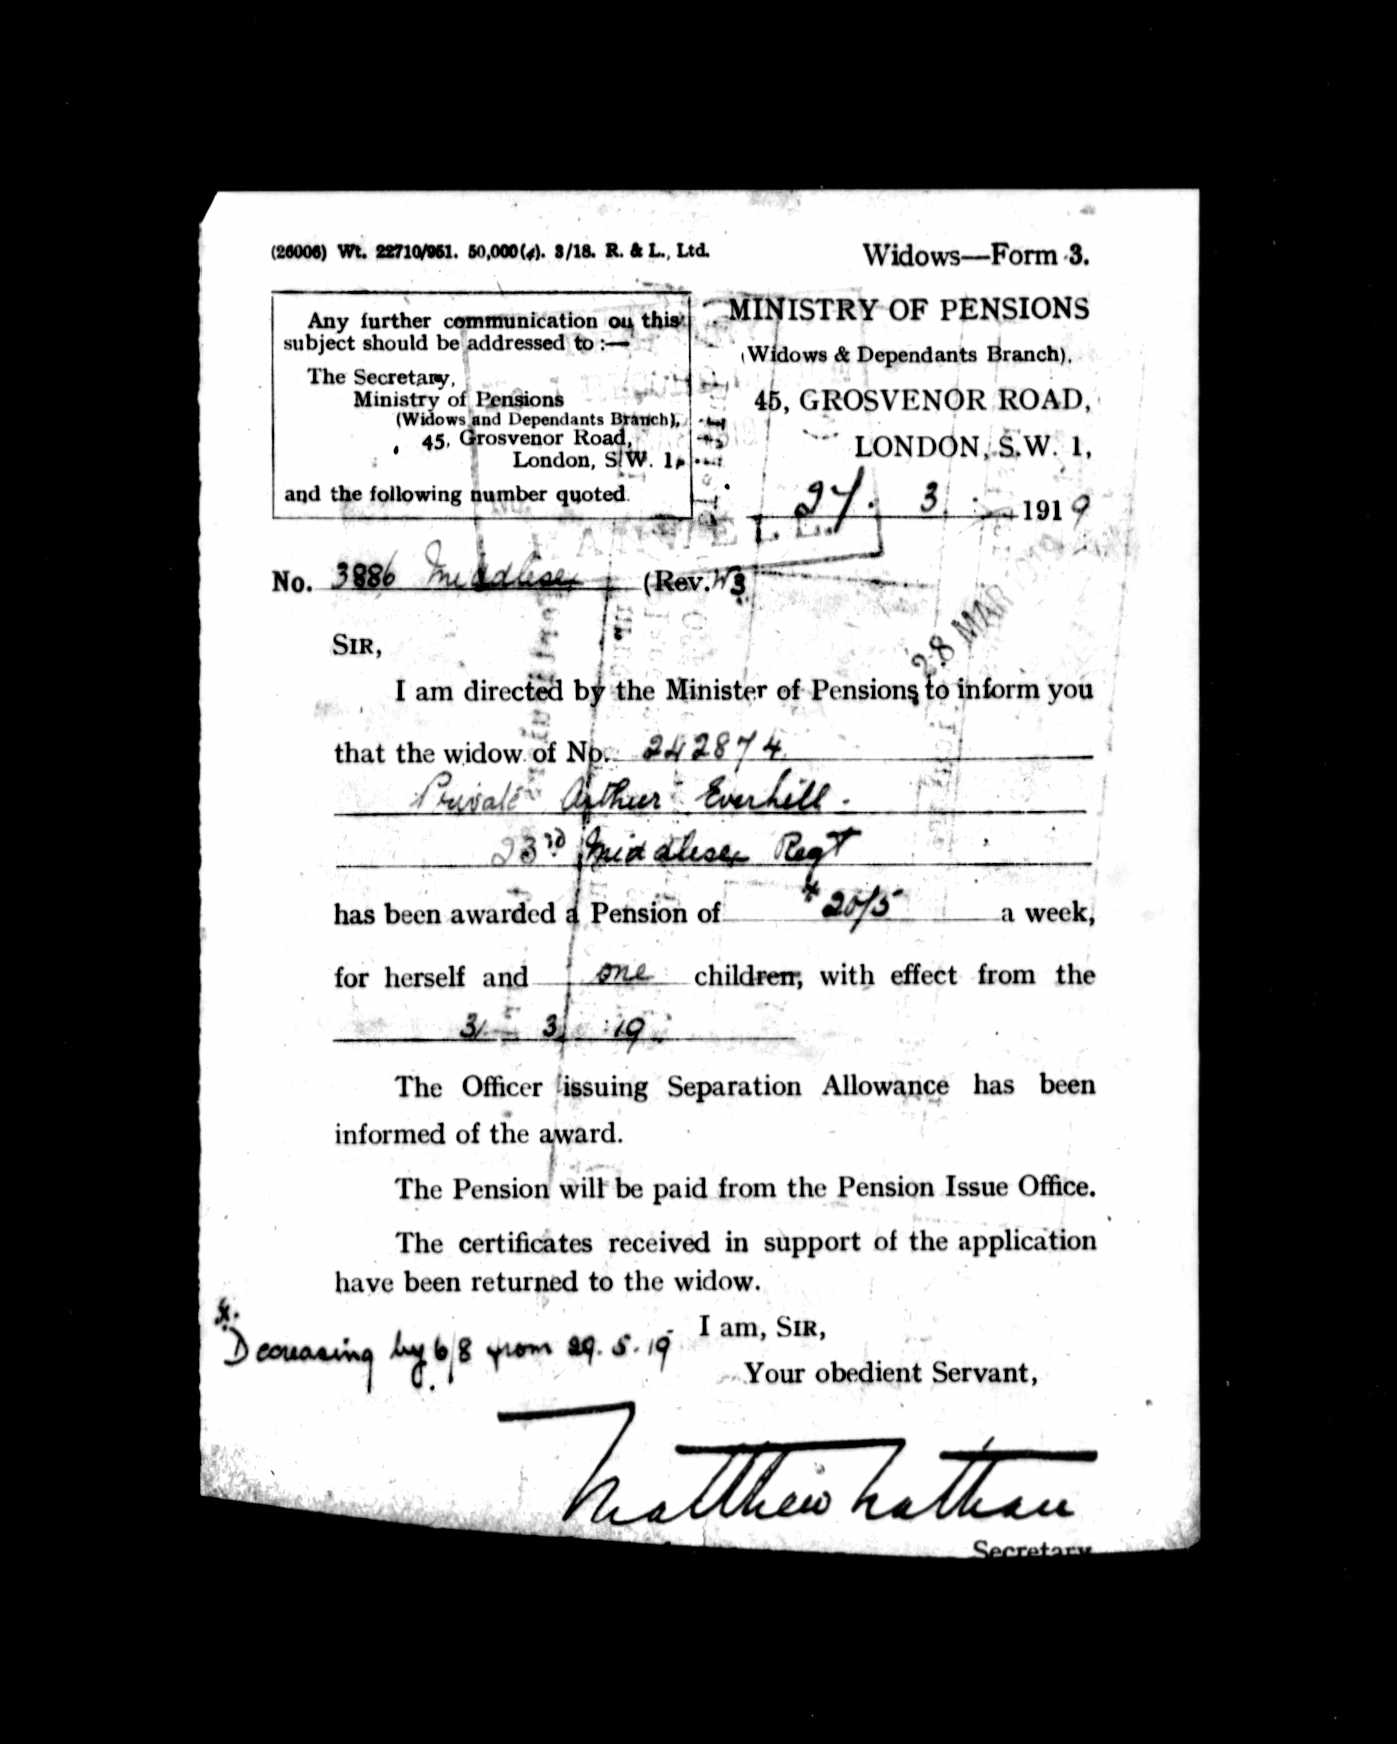 (26006) Wt. 22710/951. 50,000(4). 3/18. R. & L., Ltd.
Widows—Form 3.
Any further communication on this
subject should be addressed to :—
The Secretary,
Ministry of Pensions
(Widows and Dependants Branch),
45, Grosvenor Road,
London, S.W. 1,
and the following number quoted.
MINISTRY OF PENSIONS
(Widows & Dependants Branch),
45, GROSVENOR ROAD,
LONDON, S.W. 1,
27. 3. 1919
No. 3886 Middlesex (Rev. W3
28 MAR 1919
SIR,
I am directed by the Minister of Pensions to inform you
that the widow of No. 242874
Private Arthur Everhill.
23rd Middlesex Regt
has been awarded a Pension of * 20/5 a week,
for herself and one children, with effect from the
31 3 19.
The Officer issuing Separation Allowance has been
informed of the award.
The Pension will be paid from the Pension Issue Office.
The certificates received in support of the application
have been returned to the widow.
I am, SIR,
Your obedient Servant,
*. Decreasing by 6/8 from 29.5.19
Matthew Nathan
Secretary